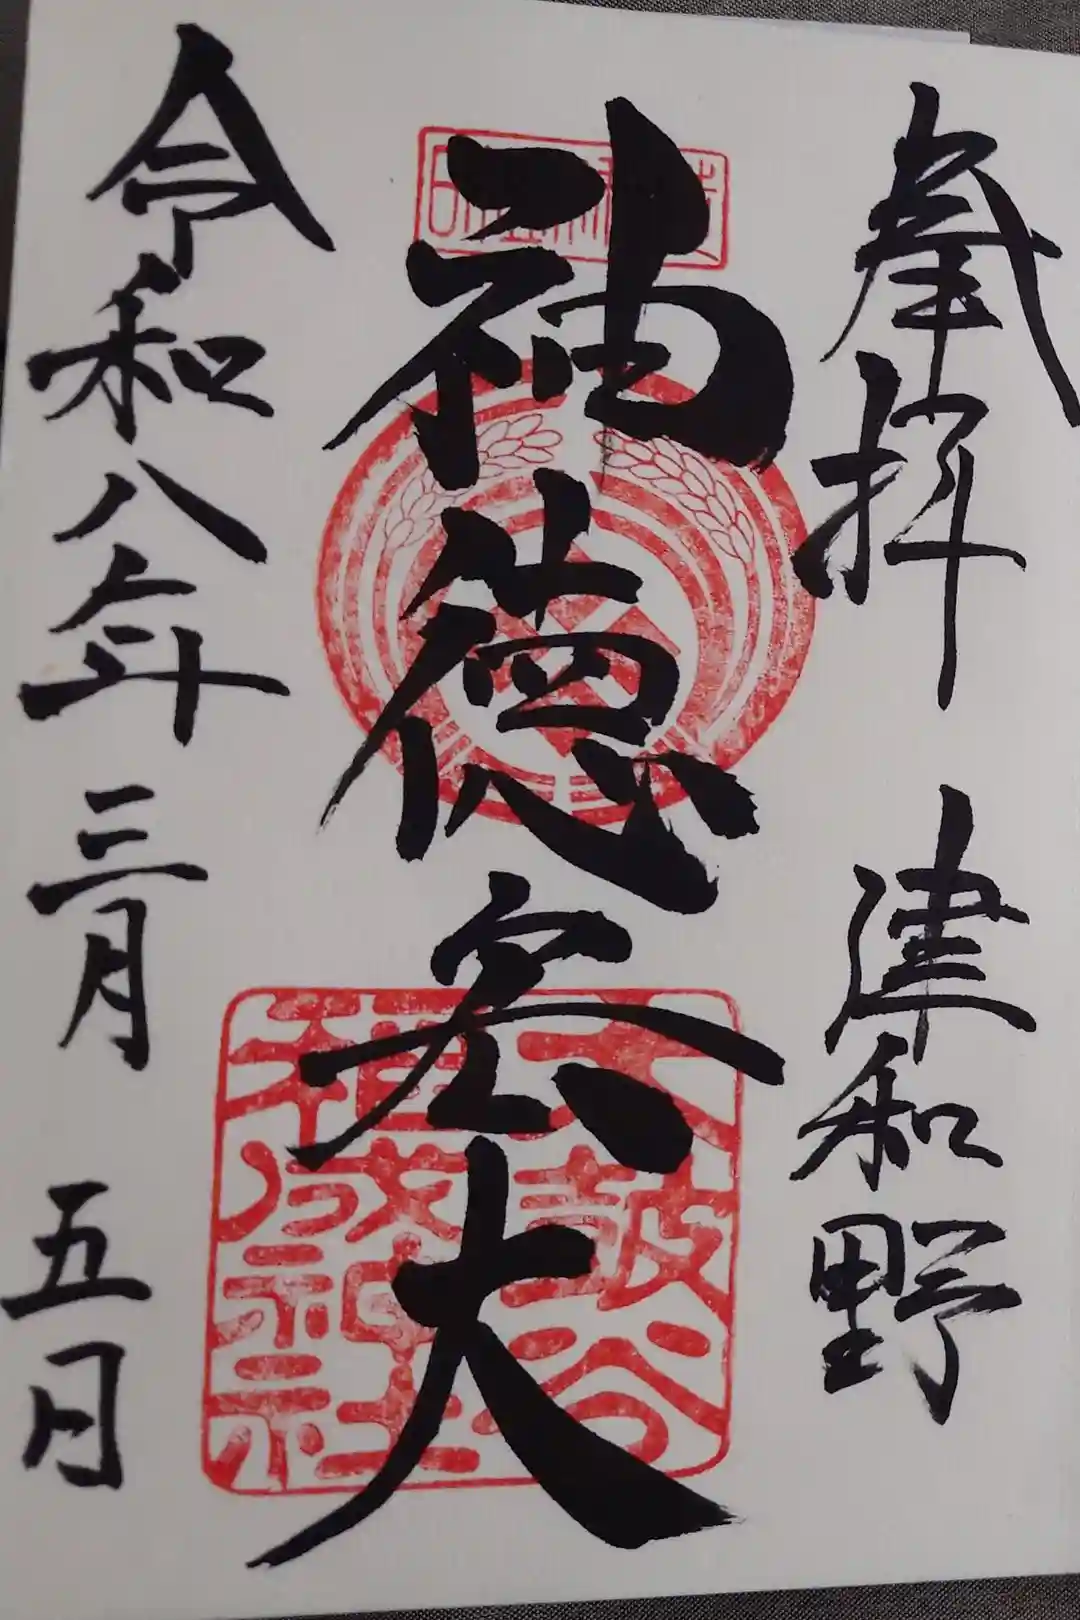 奉拝 津和野
神徳宏大
太皷谷
稲成
神社
令和八年三月五日